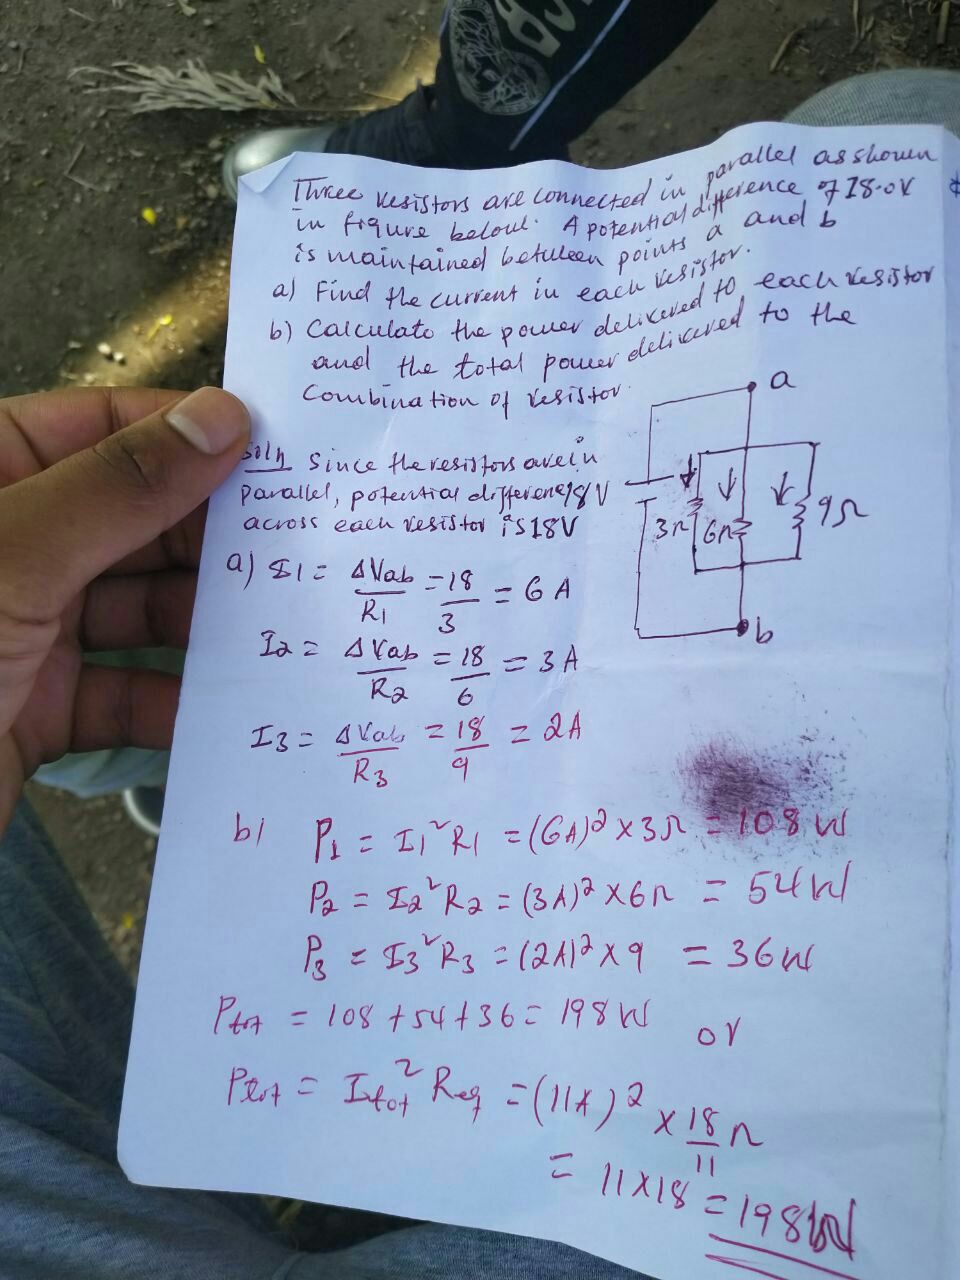 Three resistors are connected in parallel as shown
in figure below. A potential difference of 18.0V
is maintained between points a and b
a) Find the current in each resistor.
b) Calculate the power delivered to each resistor
and the total power delivered to the
Combination of resistor.
a
Soln Since the resistors are in
parallel, potential difference 18V
across each resistor is 18V
3Ω 6Ω 9Ω
b
a) I1 = ΔVab/R1 = 18/3 = 6 A
I2 = ΔVab/R2 = 18/6 = 3A
I3 = ΔVab/R3 = 18/9 = 2A
b) P1 = I1²R1 = (6A)² × 3Ω = 108 W
P2 = I2²R2 = (3A)² × 6Ω = 54W
P3 = I3²R3 = (2A)² × 9 = 36W
Ptot = 108 + 54 + 36 = 198W or
Ptot = Itot² Req = (11A)² × 18/11 Ω
= 11 × 18 = 198W